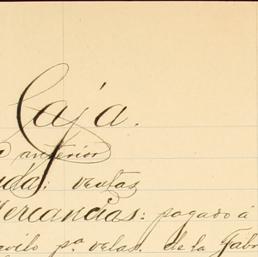 Caja.
anterior
ventas
Mercancias: pagado á
pª velas. de la Fabr